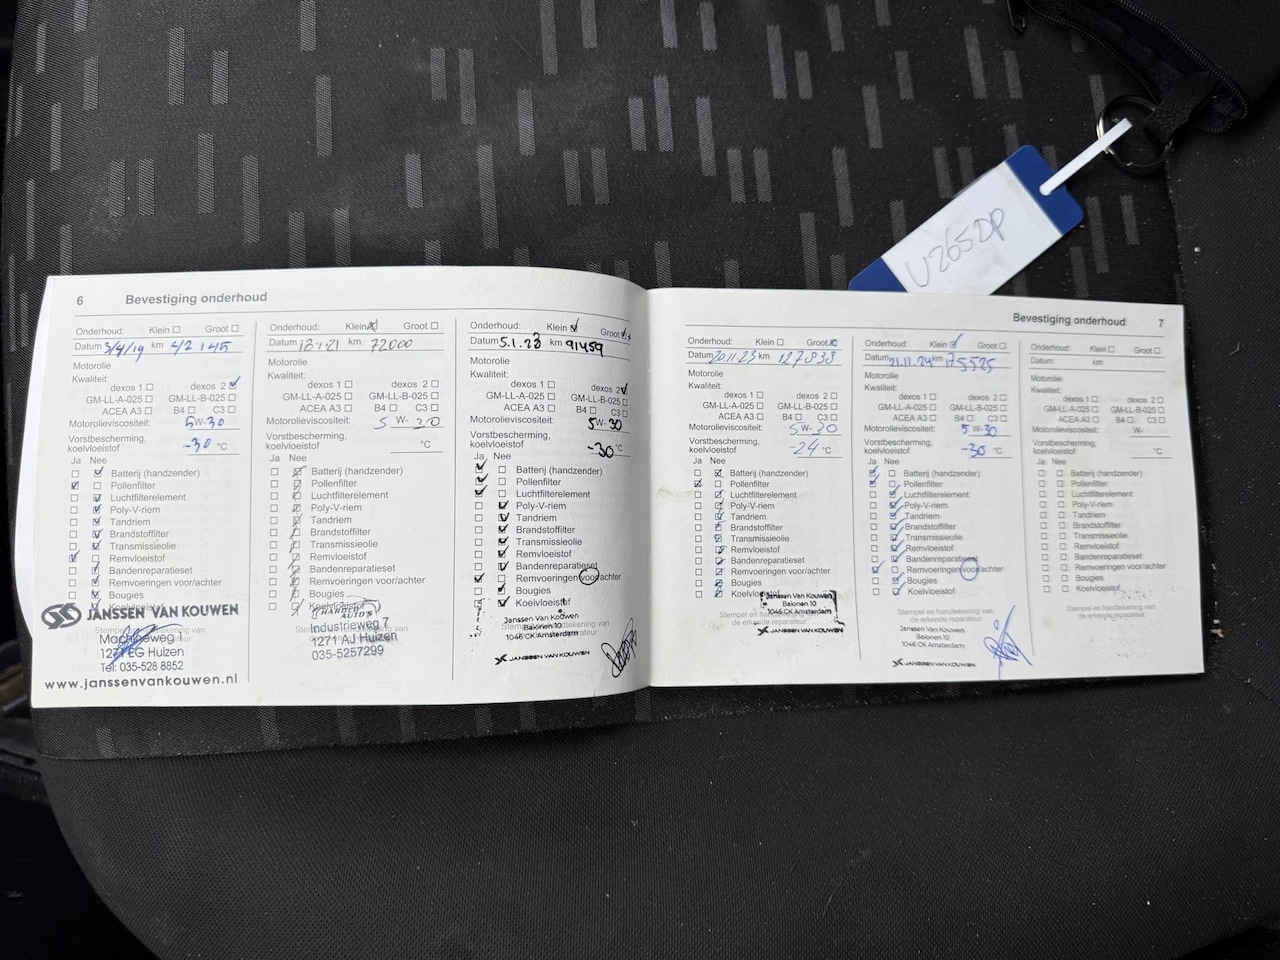 U265DP
6 Bevestiging onderhoud
Onderhoud: Klein Groot
Datum 3/4/19 km 42 145
Motorolie
Kwaliteit:
dexos 1 dexos 2
GM-LL-A-025 GM-LL-B-025
ACEA A3 B4 C3
Motorolieviscositeit: 5W-30
Vorstbescherming,
koelvloeistof -30 °C
Ja Nee
Batterij (handzender)
Pollenfilter
Luchtfilterelement
Poly-V-riem
Tandriem
Brandstoffilter
Transmissieolie
Remvloeistof
Bandenreparatieset
Remvoeringen voor/achter
Bougies
Koelvloeistof
JANSSEN VAN KOUWEN
Machineweg
Tel: 035-528 8852
www.janssenvankouwen.nl
Onderhoud: Klein Groot
Datum km 72000
Motorolie
Kwaliteit:
dexos 1 dexos 2
GM-LL-A-025 GM-LL-B-025
ACEA A3 B4 C3
Motorolieviscositeit: 5 W- 30
Vorstbescherming,
koelvloeistof °C
Ja Nee
Batterij (handzender)
Pollenfilter
Luchtfilterelement
Poly-V-riem
Tandriem
Brandstoffilter
Transmissieolie
Remvloeistof
Bandenreparatieset
Remvoeringen voor/achter
Bougies
Koelvloeistof
Industrieweg 7
1271 AJ Huizen
035-5257299
Onderhoud: Klein Groot
Datum 5.1.23 km 91459
Motorolie
Kwaliteit:
dexos 1 dexos 2
GM-LL-A-025 GM-LL-B-025
ACEA A3 B4 C3
Motorolieviscositeit: 5W-30
Vorstbescherming,
koelvloeistof -30 °C
Ja Nee
Batterij (handzender)
Pollenfilter
Luchtfilterelement
Poly-V-riem
Tandriem
Brandstoffilter
Transmissieolie
Remvloeistof
Bandenreparatieset
Remvoeringen voor/achter
Bougies
Koelvloeistof
Janssen Van Kouwen
Balonen 10
1046 CK Amsterdam
JANSSEN VAN KOUWEN
Bevestiging onderhoud 7
Onderhoud: Klein Groot
Datum 20.11.23 km 127838
Motorolie
Kwaliteit:
dexos 1 dexos 2
GM-LL-A-025 GM-LL-B-025
ACEA A3 B4 C3
Motorolieviscositeit: 5 W-30
Vorstbescherming,
koelvloeistof -24 °C
Ja Nee
Batterij (handzender)
Pollenfilter
Luchtfilterelement
Poly-V-riem
Tandriem
Brandstoffilter
Transmissieolie
Remvloeistof
Bandenreparatieset
Remvoeringen voor/achter
Bougies
Koelvloeistof
Janssen Van Kouwen
Balonen 10
1046 CK Amsterdam
Stempel en handtekening van
de erkende reparateur
JANSSEN VAN KOUWEN
Onderhoud: Klein Groot
Datum 21.11.24 km 75525
Motorolie
Kwaliteit:
dexos 1 dexos 2
GM-LL-A-025 GM-LL-B-025
ACEA A3 B4 C3
Motorolieviscositeit: 5 W-30
Vorstbescherming,
koelvloeistof -30 °C
Ja Nee
Batterij (handzender)
Pollenfilter
Luchtfilterelement
Poly-V-riem
Tandriem
Brandstoffilter
Transmissieolie
Remvloeistof
Bandenreparatieset
Remvoeringen voor/achter
Bougies
Koelvloeistof
Stempel en handtekening van
de erkende reparateur
Janssen Van Kouwen
Balonen 10
1046 CK Amsterdam
JANSSEN VAN KOUWEN
Onderhoud: Klein Groot
Datum km
Motorolie
Kwaliteit:
dexos 1 dexos 2
GM-LL-A-025 GM-LL-B-025
ACEA A3 B4 C3
Motorolieviscositeit: W-
Vorstbescherming,
koelvloeistof °C
Ja Nee
Batterij (handzender)
Pollenfilter
Luchtfilterelement
Poly-V-riem
Tandriem
Brandstoffilter
Transmissieolie
Remvloeistof
Bandenreparatieset
Remvoeringen voor/achter
Bougies
Koelvloeistof
Stempel en handtekening van
de erkende reparateur